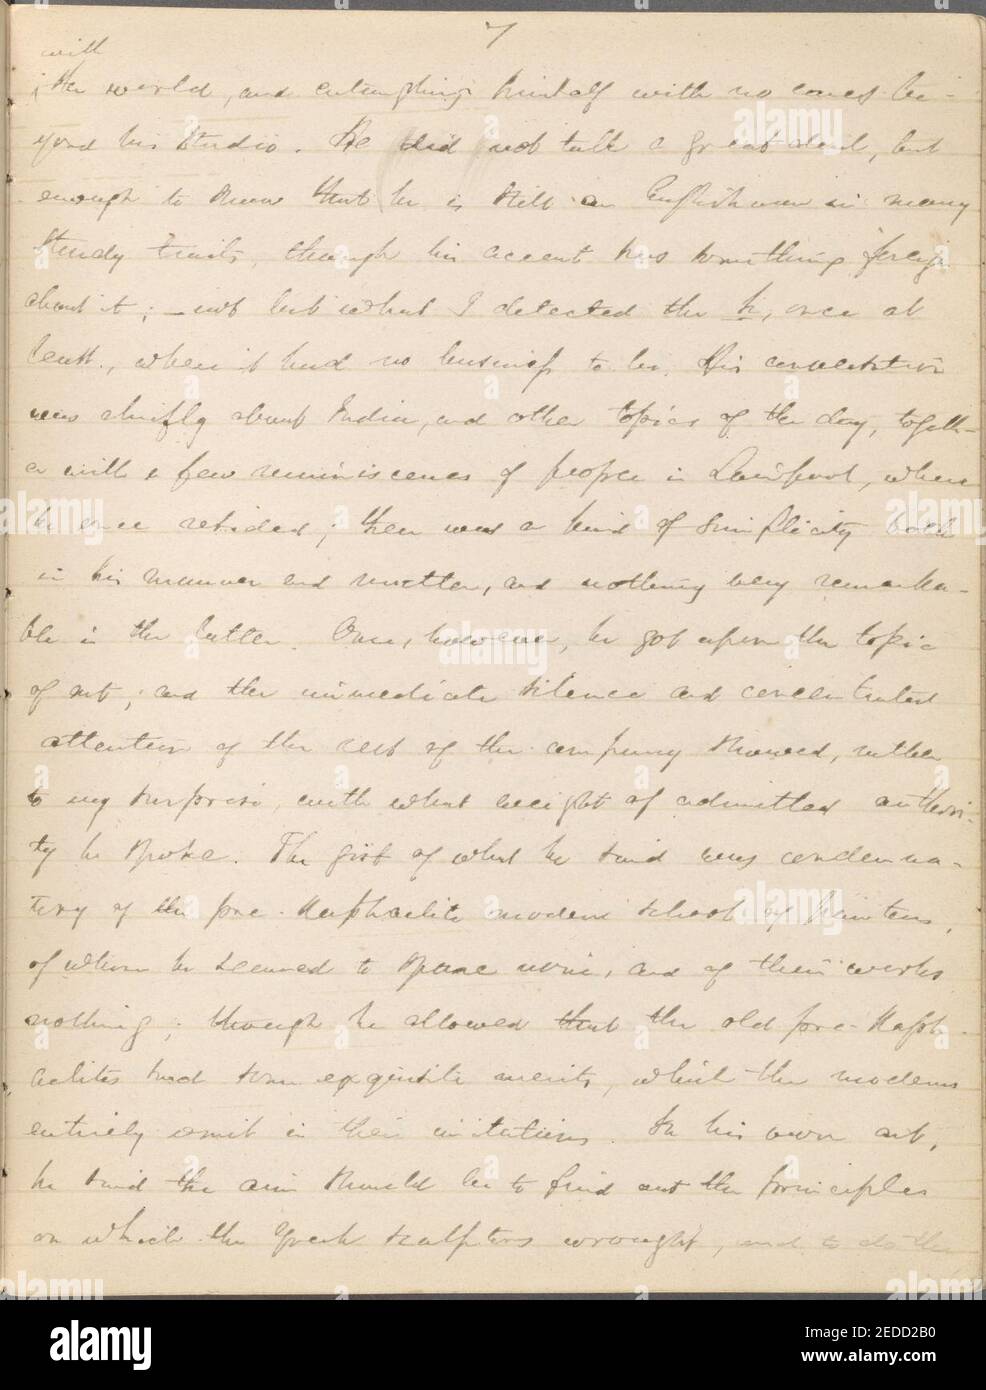 7
with
the world, and entangling himself with no cares be-
yond his studio. He did not talk a great deal, but
enough to show that he is still an Englishman in many
sturdy traits, though his accent has something foreign
about it; – not but what I detected the h, once at
least, when it had no business to be. His conversation
was chiefly about India, and other topics of the day, togeth-
er with a few reminiscences of people in Liverpool, where
he once resided; there was a kind of simplicity both
in his manner and matter, and nothing very remarka-
ble in the latter. Once, however, he got upon the topic
of art; and the immediate silence and concentrated
attention of the rest of the company showed, rather
to my surprise, with what weight of admitted authori-
ty he spoke. The gist of what he said was condemna-
tory of the pre-Raphaelite modern school of painters,
of whom he seemed to spare none, and of their works
nothing; though he allowed that the old pre-Raph-
aelites had some exquisite merits, which the moderns
entirely omit in their imitations. In his own art,
he said the aim should be to find out the principles
on which the Greek sculptors wrought, and to do the
alamy
Image ID: 2EDD2B0
www.alamy.com